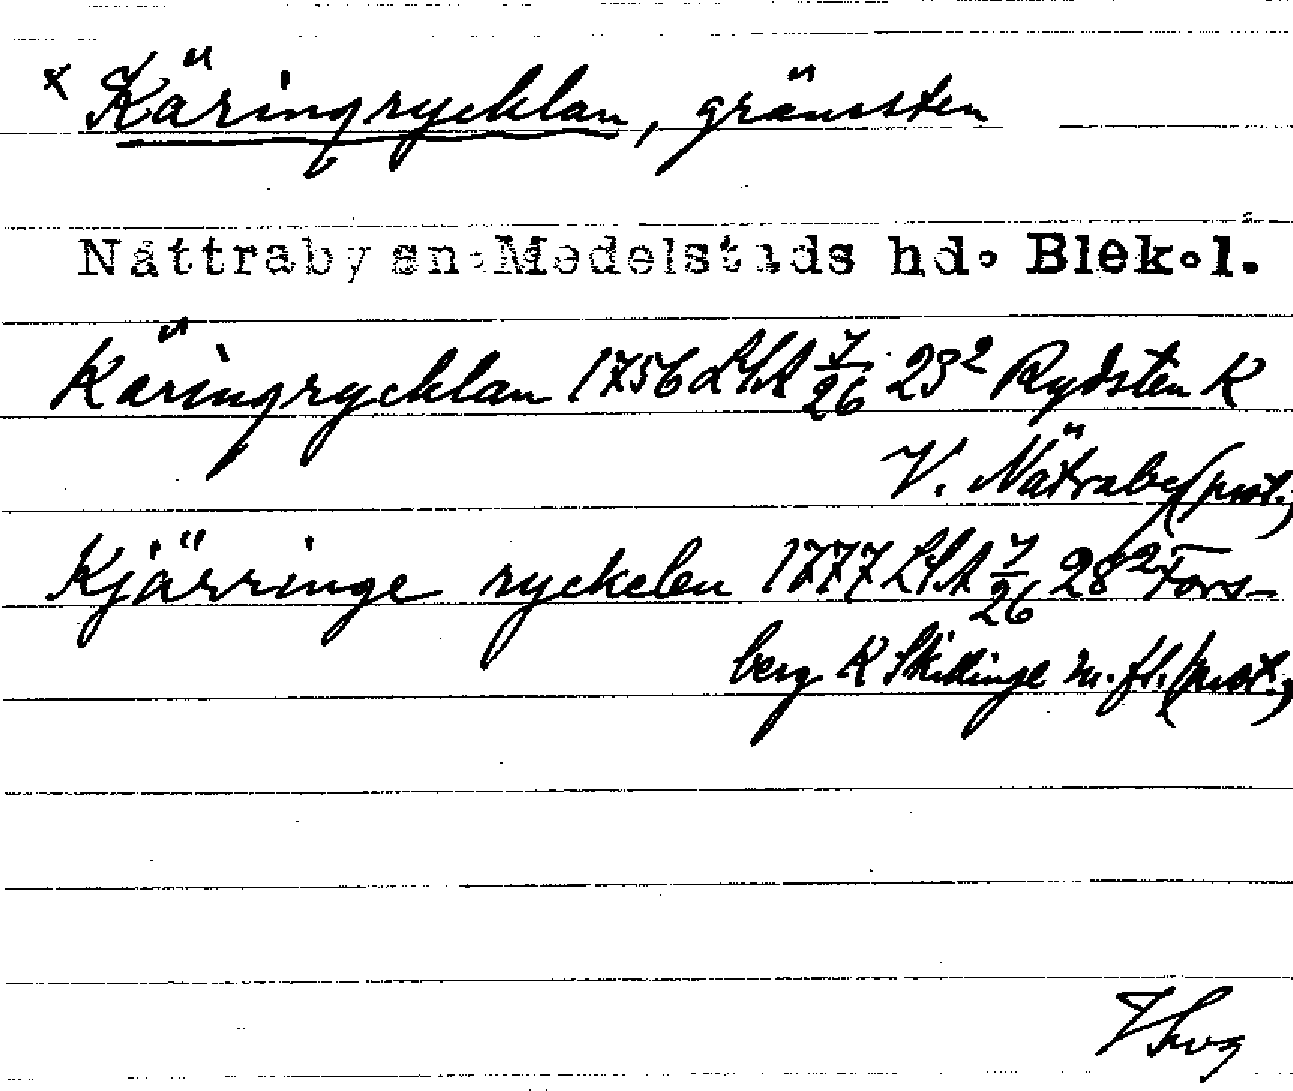 x Käringrycklan, gränssten
Nättraby sn. Medelstads hd. Blek. l.
Käringrycklan 1756 LSA 7/26 23² Rydsten K
V. Nätraby (prot.)
Kjärringe ryckelen 1777 LSA 7/26 28² Fors-
berg K Skillinge m. fl. (prot.)